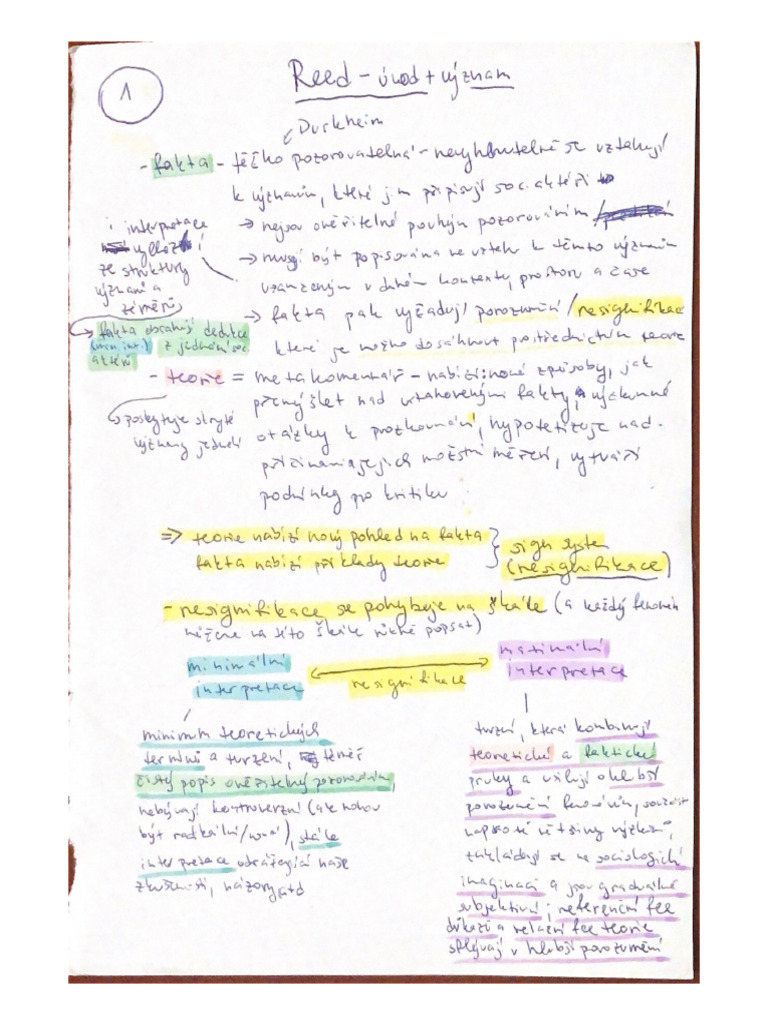 1
Reed - úvod + význam
Durkheim
- fakta - těžko pozorovatelná - nevyhnutelně se vztahují
k významům, které jim připisují soc. aktéři
→ nejsou ověřitelné pouhým pozorováním /
→ musejí být popisována ve vztahu k těmto významům
vsazeným v daném kontextu, prostoru a čase
i interpretace
ze struktury
významů a
záměrů
→ fakta pak vyžadují porozumění / resignifikace
které je možno dosáhnout prostřednictvím teorie
fakta obsahují dedukce
(min. int.) z jednání soc.
aktérů
- teorie = metakomentář - nabízí: nové způsoby, jak
přemýšlet nad ustanovenými fakty, výzkumné
otázky k prozkoumání, hypotetizuje nad
příčinami a jejich možstní měření, vytváří
podmínky pro kritiku
poskytuje skryté
významy jednání
⇒ teorie nabízí nový pohled na fakta
fakta nabízí příklady teorie
} sign system
(resignifikace)
- resignifikace se pohybuje na škále (a každý fenomén
můžeme na této škále různě popsat)
minimální
interpretace
resignifikace
maximální
interpretace
minimum teoretických
termínů a tvrzení, téměř
čistý popis ověřitelný pozorováním,
nebývají kontroverzní (ale mohou
být radikální/nové), stále
interpretace odrážející naše
zkušenosti, názory atd
tvrzení, která kombinují
teoretické a faktické
prvky a usilují o hlubší
porozumění fenoménům, součást
naprosté většiny výzkumů,
zakládají se na sociologické
imaginaci a jsou graduálně
subjektivní; referenční fce
důkazů a relační fce teorie
splývají v hlubší porozumění